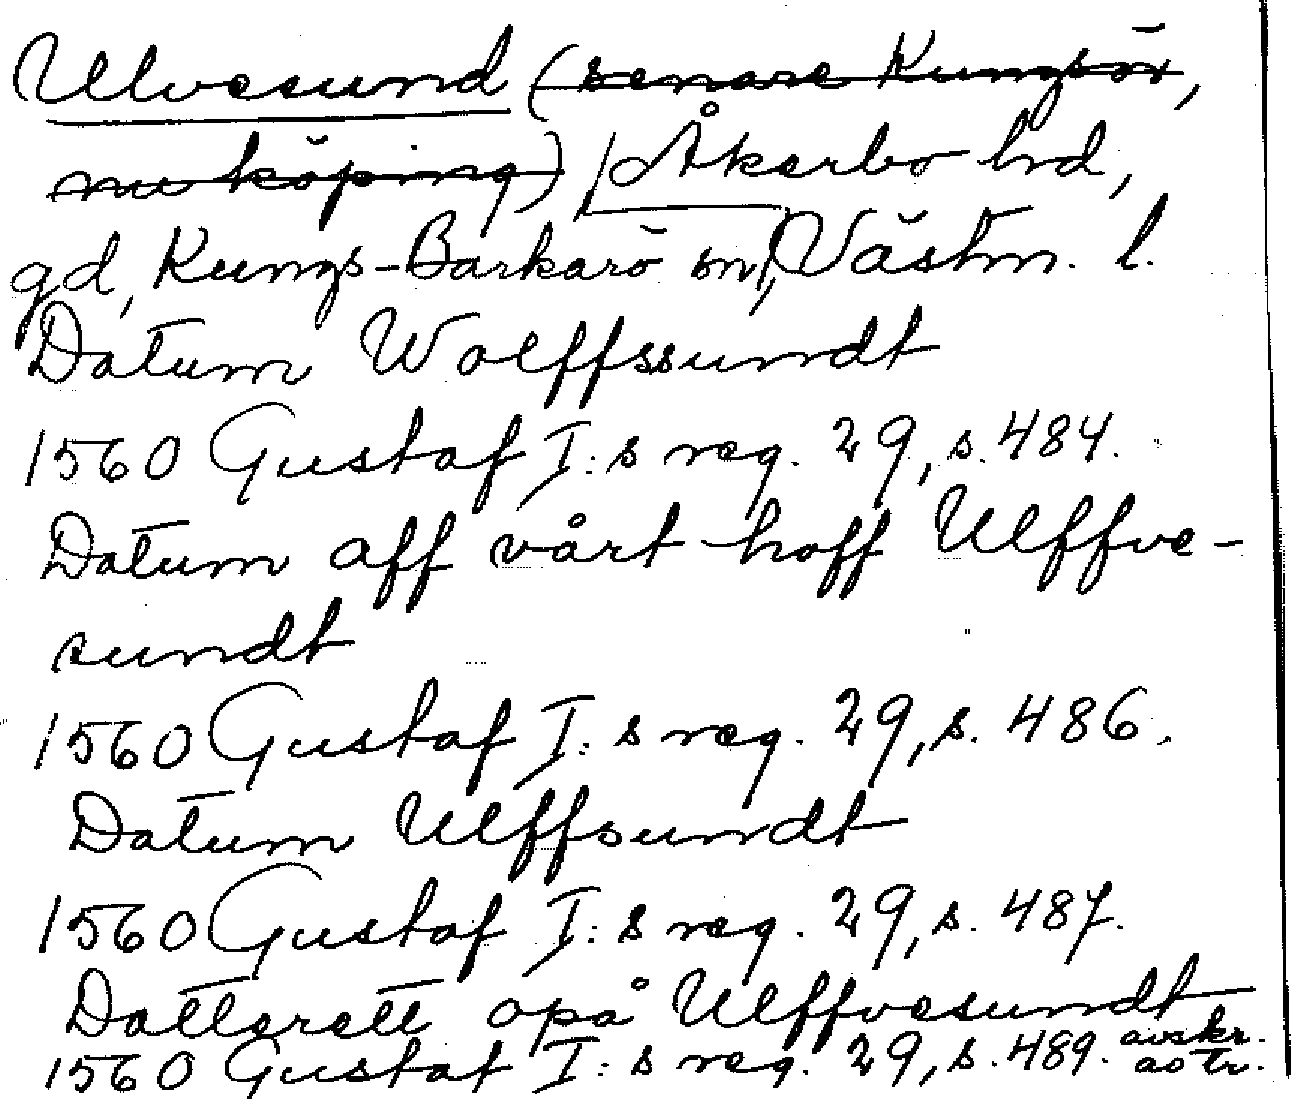 Ulvesund (senare Kungsör,
nu köping) Åkerbo hd,
gd, Kungs-Barkarö sn, Västm. l.
Datum Wolffssundt
1560 Gustaf I:s reg. 29, s. 484.
Datum aff vårt hoff Ulffve-
sundt
1560 Gustaf I:s reg. 29, s. 486.
Datum Ulffsundt
1560 Gustaf I:s reg. 29, s. 487.
Datterett opå Ulffvesundt
1560 Gustaf I:s reg. 29, s. 489. avskr.
ao tr.